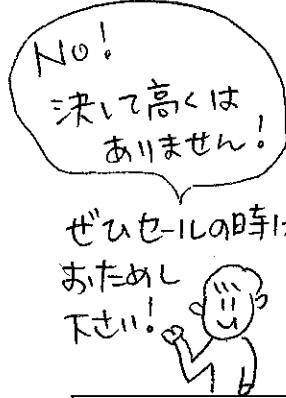 No!
決して高くは
ありません!
ぜひセールの時に
おためし
下さい!